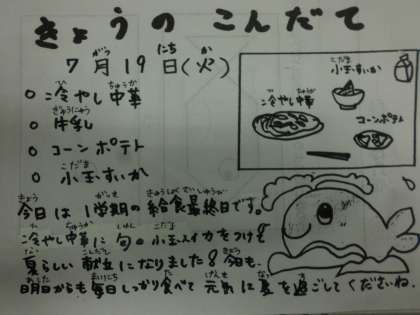 きょうの こんだて
7月19日(火)
冷やし中華
牛乳
コーンポテト
小玉すいか
小玉すいか
冷やし中華
コーンポテト
今日は1学期の給食最終日です。
冷やし中華に旬の小玉スイカをつけて
夏らしい献立になりました!今日も、
明日からも毎日しっかり食べて元気に夏を過ごしてくださいね。